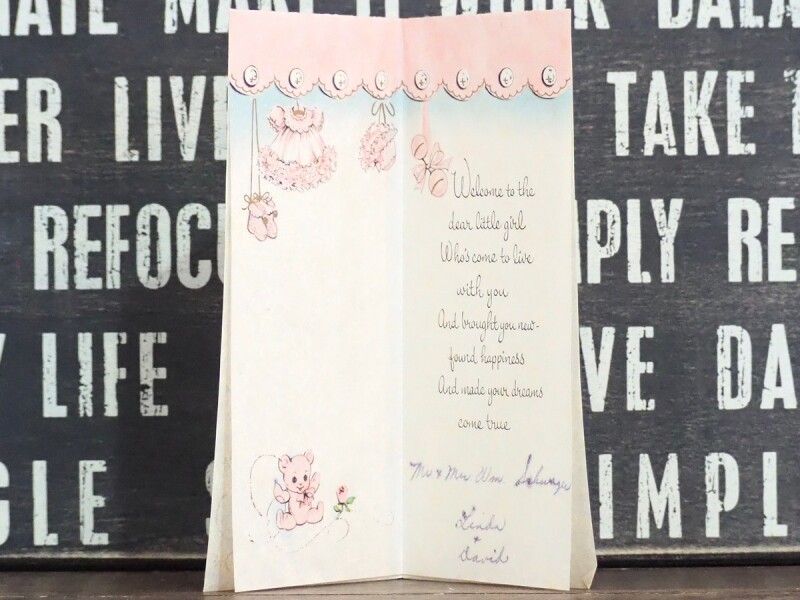 MAKE IT WORK BALA
ER LIVE
TAKE
REFOCU
PLY RE
LIFE
VE DA
GLE S
IMPL
Welcome to the
dear little girl
Who's come to live
with you
And brought you new-
found happiness
And made your dreams
come true
Mr & Mrs Wm.
Linda
&
David